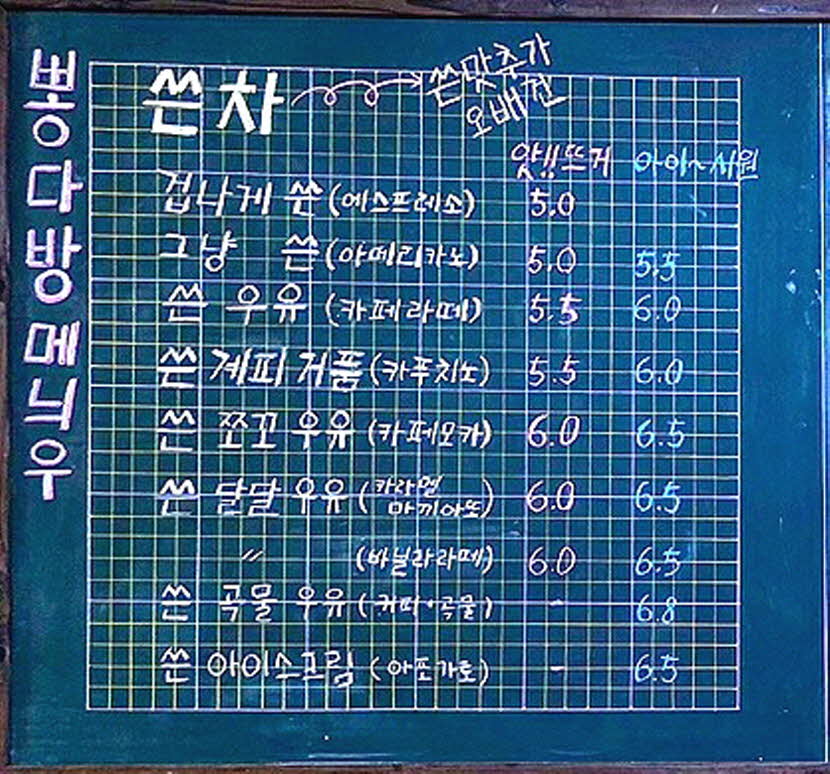 뽕다방메늬우
쓴차
쓴맛추가
오배건
앗!! 뜨거 아이~시원
겁나게 쓴 (에스프레소) 5.0
그냥 쓴 (아메리카노) 5.0 5.5
쓴 우유 (카페라떼) 5.5 6.0
쓴 계피 거품 (카푸치노) 5.5 6.0
쓴 쪼꼬 우유 (카페모카) 6.0 6.5
쓴 달달 우유 (카라멜
마끼아또) 6.0 6.5
〃 (바닐라라떼) 6.0 6.5
쓴 곡물 우유 (커피·곡물) - 6.8
쓴 아이스크림 (아포가토) - 6.5